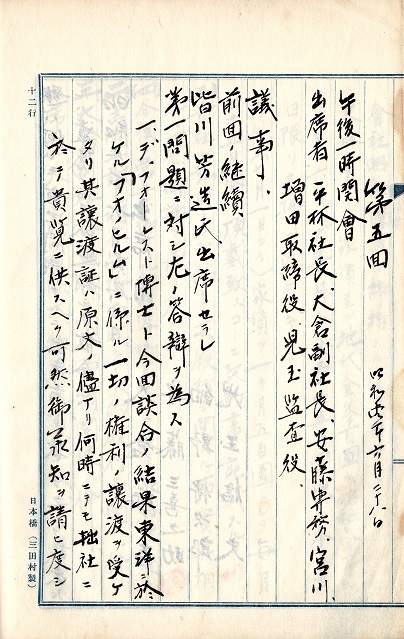 第五回
昭和七年六月二十八日
午後一時開會
出席者 平林社長、大倉副社長、安藤常務、宮川、
増田取締役、児玉監査役、
議事、
前回ノ継續
皆川芳造氏出席セラレ
第一問題ニ対シ左ノ答辯ヲ為ス
一、デフオーレスト博士ト今回談合ノ結果東洋ニ於
ケル「フオノヒルム」ニ係ル一切ノ権利ノ譲渡ヲ受ケ
タリ其譲渡証ハ原文ノ儘ナリ何時ニテモ拙社ニ
於テ貴覧ニ供スヘク可然御承知ヲ請ヒ度シ
十二行
日本橋(三田村製)